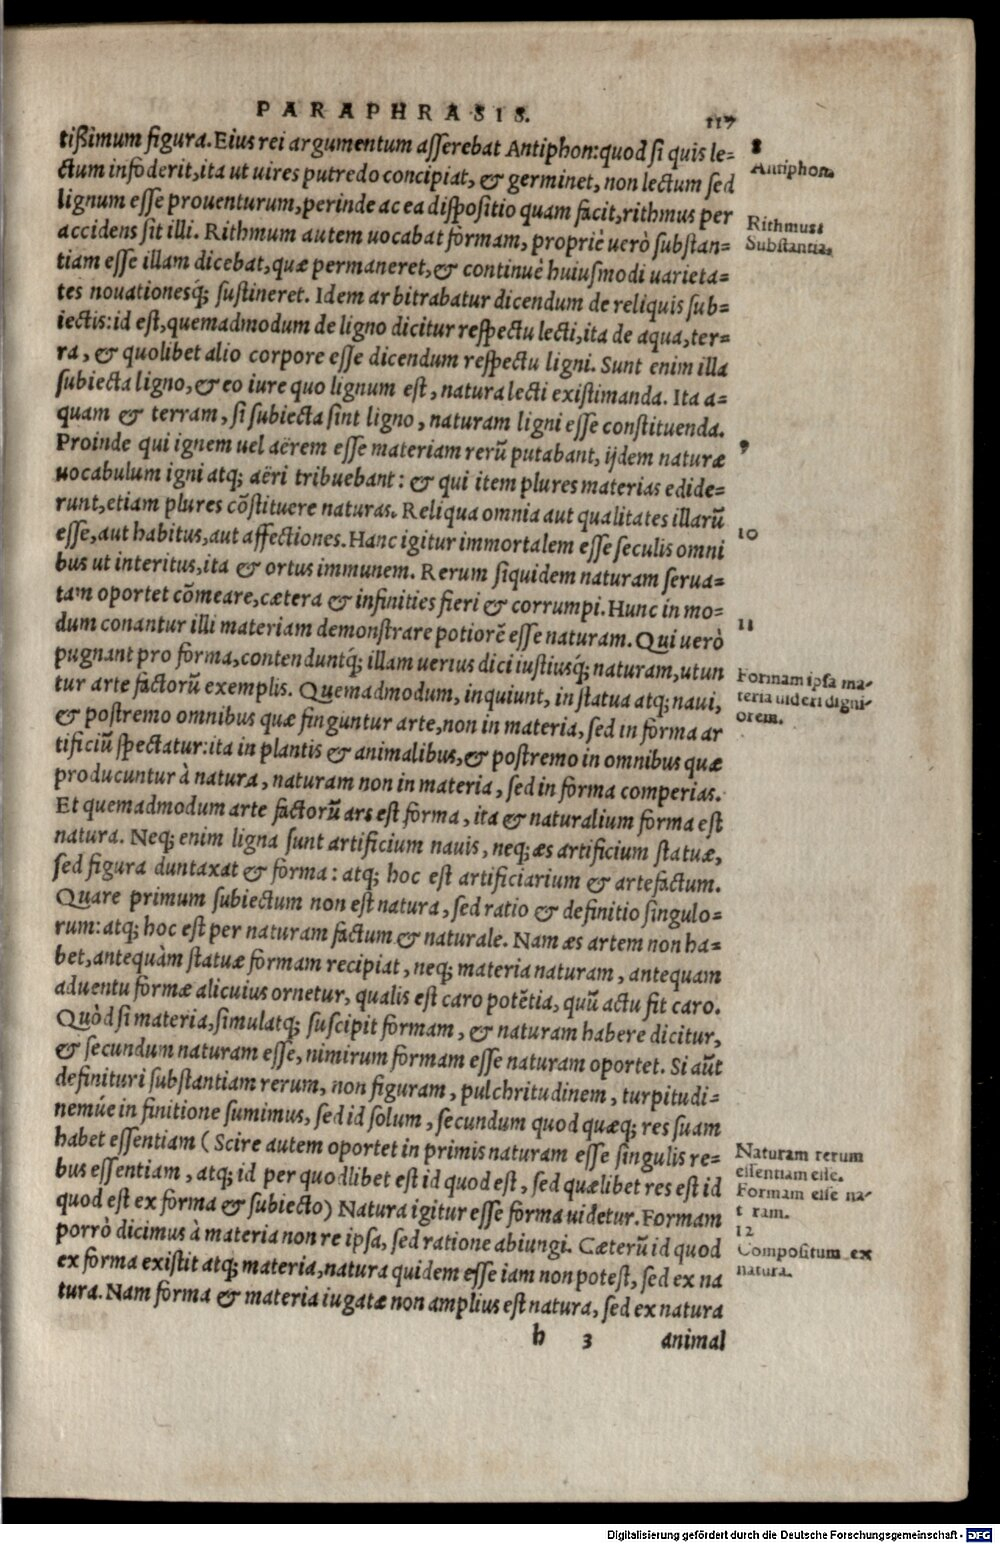 PARAPHRASIS. 117
tißimum figura. Eius rei argumentum asserebat Antiphon: quod si quis le=
ctum infoderit, ita ut uires putredo concipiat, & germinet, non lectum sed
lignum esse prouenturum, perinde ac ea dispositio quam facit, rithmus per
accidens sit illi. Rithmum autem uocabat formam, propriè uerò substan=
tiam esse illam dicebat, quæ permaneret, & continuè huiusmodi uarieta=
tes nouationesq́; sustineret. Idem arbitrabatur dicendum de reliquis sub=
iectis: id est, quemadmodum de ligno dicitur respectu lecti, ita de aqua, ter=
ra, & quolibet alio corpore esse dicendum respectu ligni. Sunt enim illa
subiecta ligno, & eo iure quo lignum est, natura lecti existimanda. Ita a=
quam & terram, si subiecta sint ligno, naturam ligni esse constituenda.
Proinde qui ignem uel aërem esse materiam rerũ putabant, ijdem naturæ
uocabulum igni atq; aëri tribuebant: & qui item plures materias edide=
runt, etiam plures cõstituere naturas. Reliqua omnia aut qualitates illarũ
esse, aut habitus, aut affectiones. Hanc igitur immortalem esse seculis omni
bus ut interitus, ita & ortus immunem. Rerum siquidem naturam serua=
tam oportet cõmeare, cætera & infinities fieri & corrumpi. Hunc in mo=
dum conantur illi materiam demonstrare potiorẽ esse naturam. Qui uerò
pugnant pro forma, contenduntq́; illam uerius dici iustiusq́; naturam, utun
tur arte factorũ exemplis. Quemadmodum, inquiunt, in statua atq; naui,
& postremo omnibus quæ finguntur arte, non in materia, sed in forma ar
tificiũ spectatur: ita in plantis & animalibus, & postremo in omnibus quæ
producuntur à natura, naturam non in materia, sed in forma comperias.
Et quemadmodum arte factorũ ars est forma, ita & naturalium forma est
natura. Neq; enim ligna sunt artificium nauis, neq; æs artificium statuæ,
sed figura duntaxat & forma: atq; hoc est artificiarium & artefactum.
Quare primum subiectum non est natura, sed ratio & definitio singulo=
rum: atq; hoc est per naturam factum & naturale. Nam æs artem non ha=
bet, antequàm statuæ formam recipiat, neq; materia naturam, antequam
aduentu formæ alicuius ornetur, qualis est caro potẽtia, quũ actu fit caro.
Quòd si materia, simulatq; suscipit formam, & naturam habere dicitur,
& secundum naturam esse, nimirum formam esse naturam oportet. Si aũt
definituri substantiam rerum, non figuram, pulchritudinem, turpitudi=
nemúe in finitione sumimus, sed id solum, secundum quod quæq; res suam
habet essentiam (Scire autem oportet in primis naturam esse singulis re=
bus essentiam, atq; id per quodlibet est id quod est, sed quælibet res est id
quod est ex forma & subiecto) Natura igitur esse forma uidetur. Formam
porrò dicimus à materia non re ipsa, sed ratione abiungi. Cæterũ id quod
ex forma existit atq; materia, natura quidem esse iam non potest, sed ex na
tura. Nam forma & materia iugatæ non amplius est natura, sed ex natura
h 3 animal
8
Antiphon.
Rithmus:
Substantia.
9
10
11
Formam ipsa ma-
teria uideri digni-
orem.
Naturam rerum
essentiam esse.
Formam esse na-
t ram.
12
Compositum ex
natura.
Digitalisierung gefördert durch die Deutsche Forschungsgemeinschaft - DFG